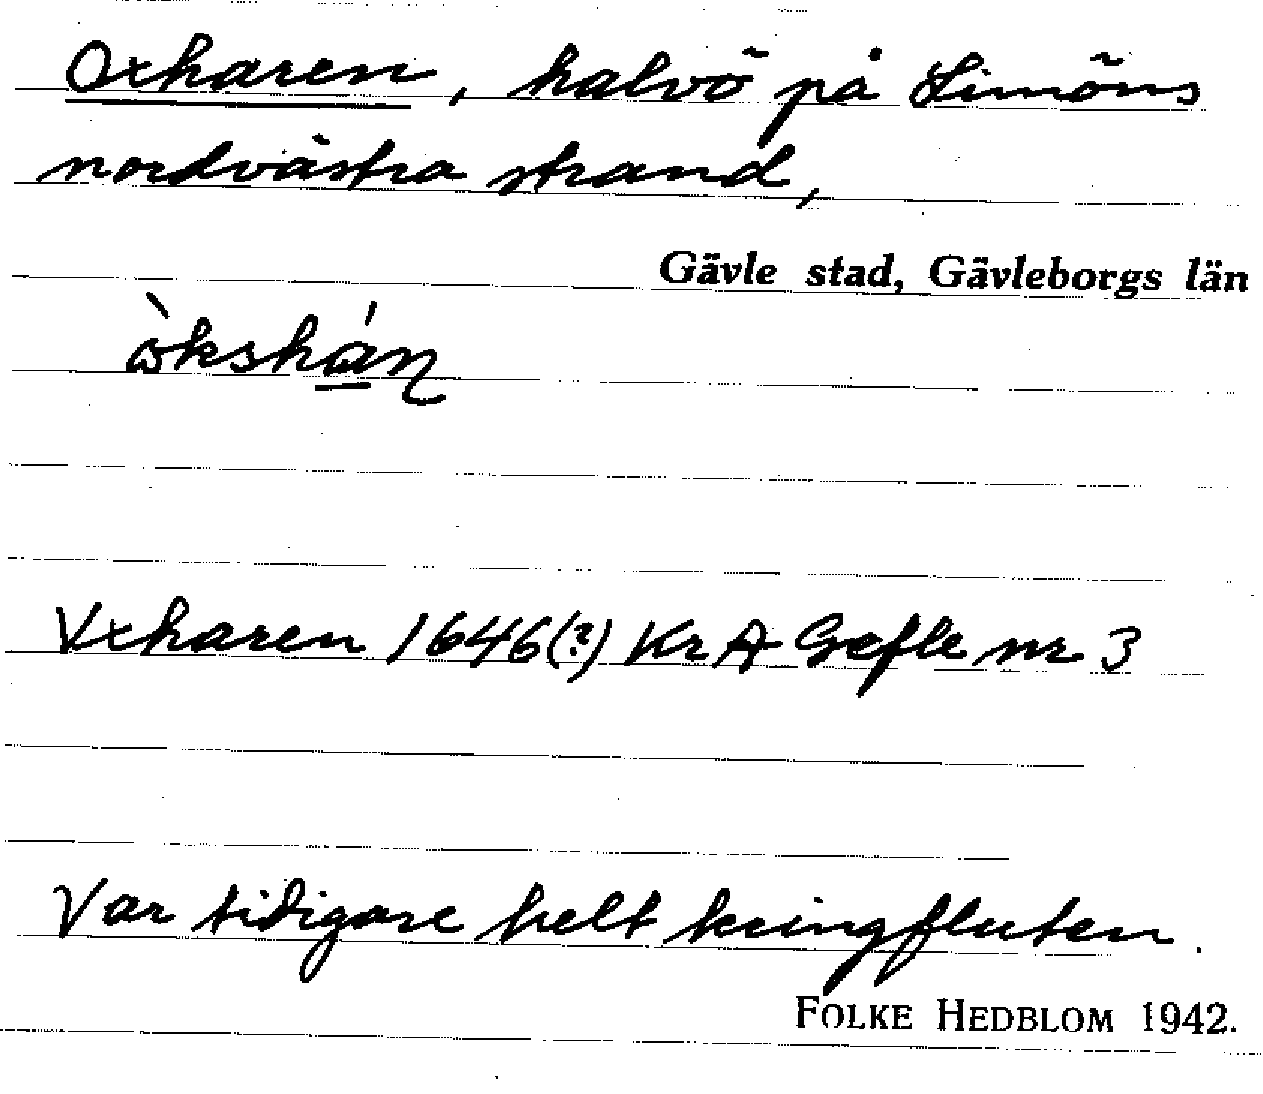 Oxharen, halvö på Limöns
nordvästra strand,
Gävle stad, Gävleborgs län
Vxharen 1646(?) KrA Gefle nr 3
Var tidigare helt kringfluten.
FOLKE HEDBLOM 1942.